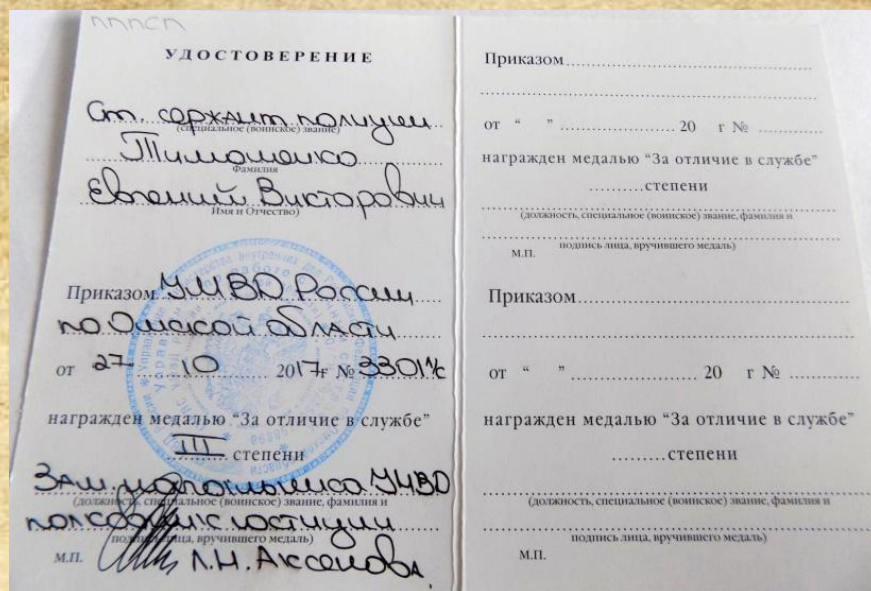 пппсп
УДОСТОВЕРЕНИЕ
Ст. сержант полиции
(специальное (воинское) звание)
Тимошенко
Фамилия
Евгений Викторович
Имя и Отчество)
Приказом УМВД России
по Омской области
от 27 10 2017г № 3301л/с
награжден медалью “За отличие в службе”
III степени
Зам. начальника УМВД
(должность, специальное (воинское) звание, фамилия и
полковник юстиции
подпись лица, вручившего медаль)
М.П. Л.Н. Аксенова
Приказом
от “ ” 20 г №
награжден медалью “За отличие в службе”
степени
(должность, специальное (воинское) звание, фамилия и
подпись лица, вручившего медаль)
М.П.
Приказом
от “ ” 20 г №
награжден медалью “За отличие в службе”
степени
(должность, специальное (воинское) звание, фамилия и
подпись лица, вручившего медаль)
М.П.